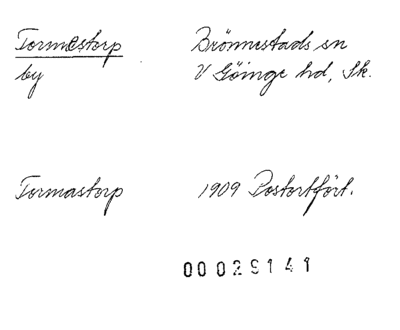 Tormestorp Brönnestads sn
by V Göinge hd, Sk.
Tormastorp 1909 Postortfört.
00029141